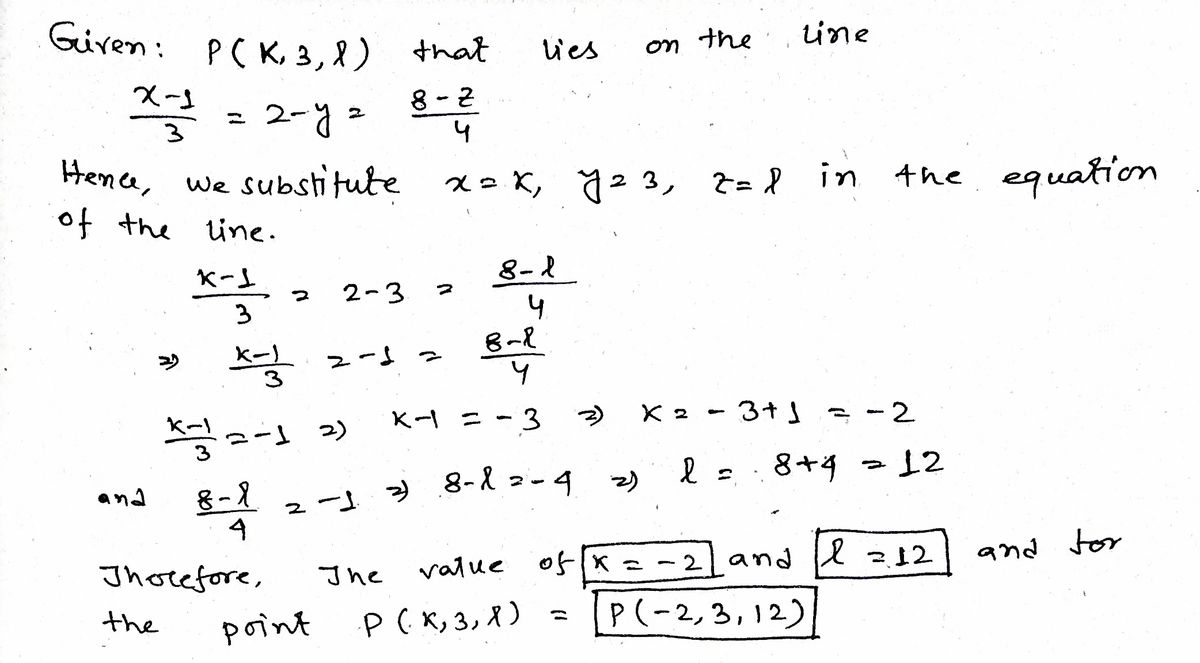 Given: P(K, 3, l) that lies on the line
x-1/3 = 2-y = 8-z/4
Hence, we substitute x = K, y = 3, z = l in the equation
of the line.
K-1/3 = 2-3 = 8-l/4
⇒ K-1/3 = -1 = 8-l/4
K-1/3 = -1 ⇒ K-1 = -3 ⇒ K = -3+1 = -2
and 8-l/4 = -1 ⇒ 8-l = -4 ⇒ l = 8+4 = 12
Therefore, The value of K = -2 and l = 12 and for
the point P(K, 3, l) = P(-2, 3, 12)